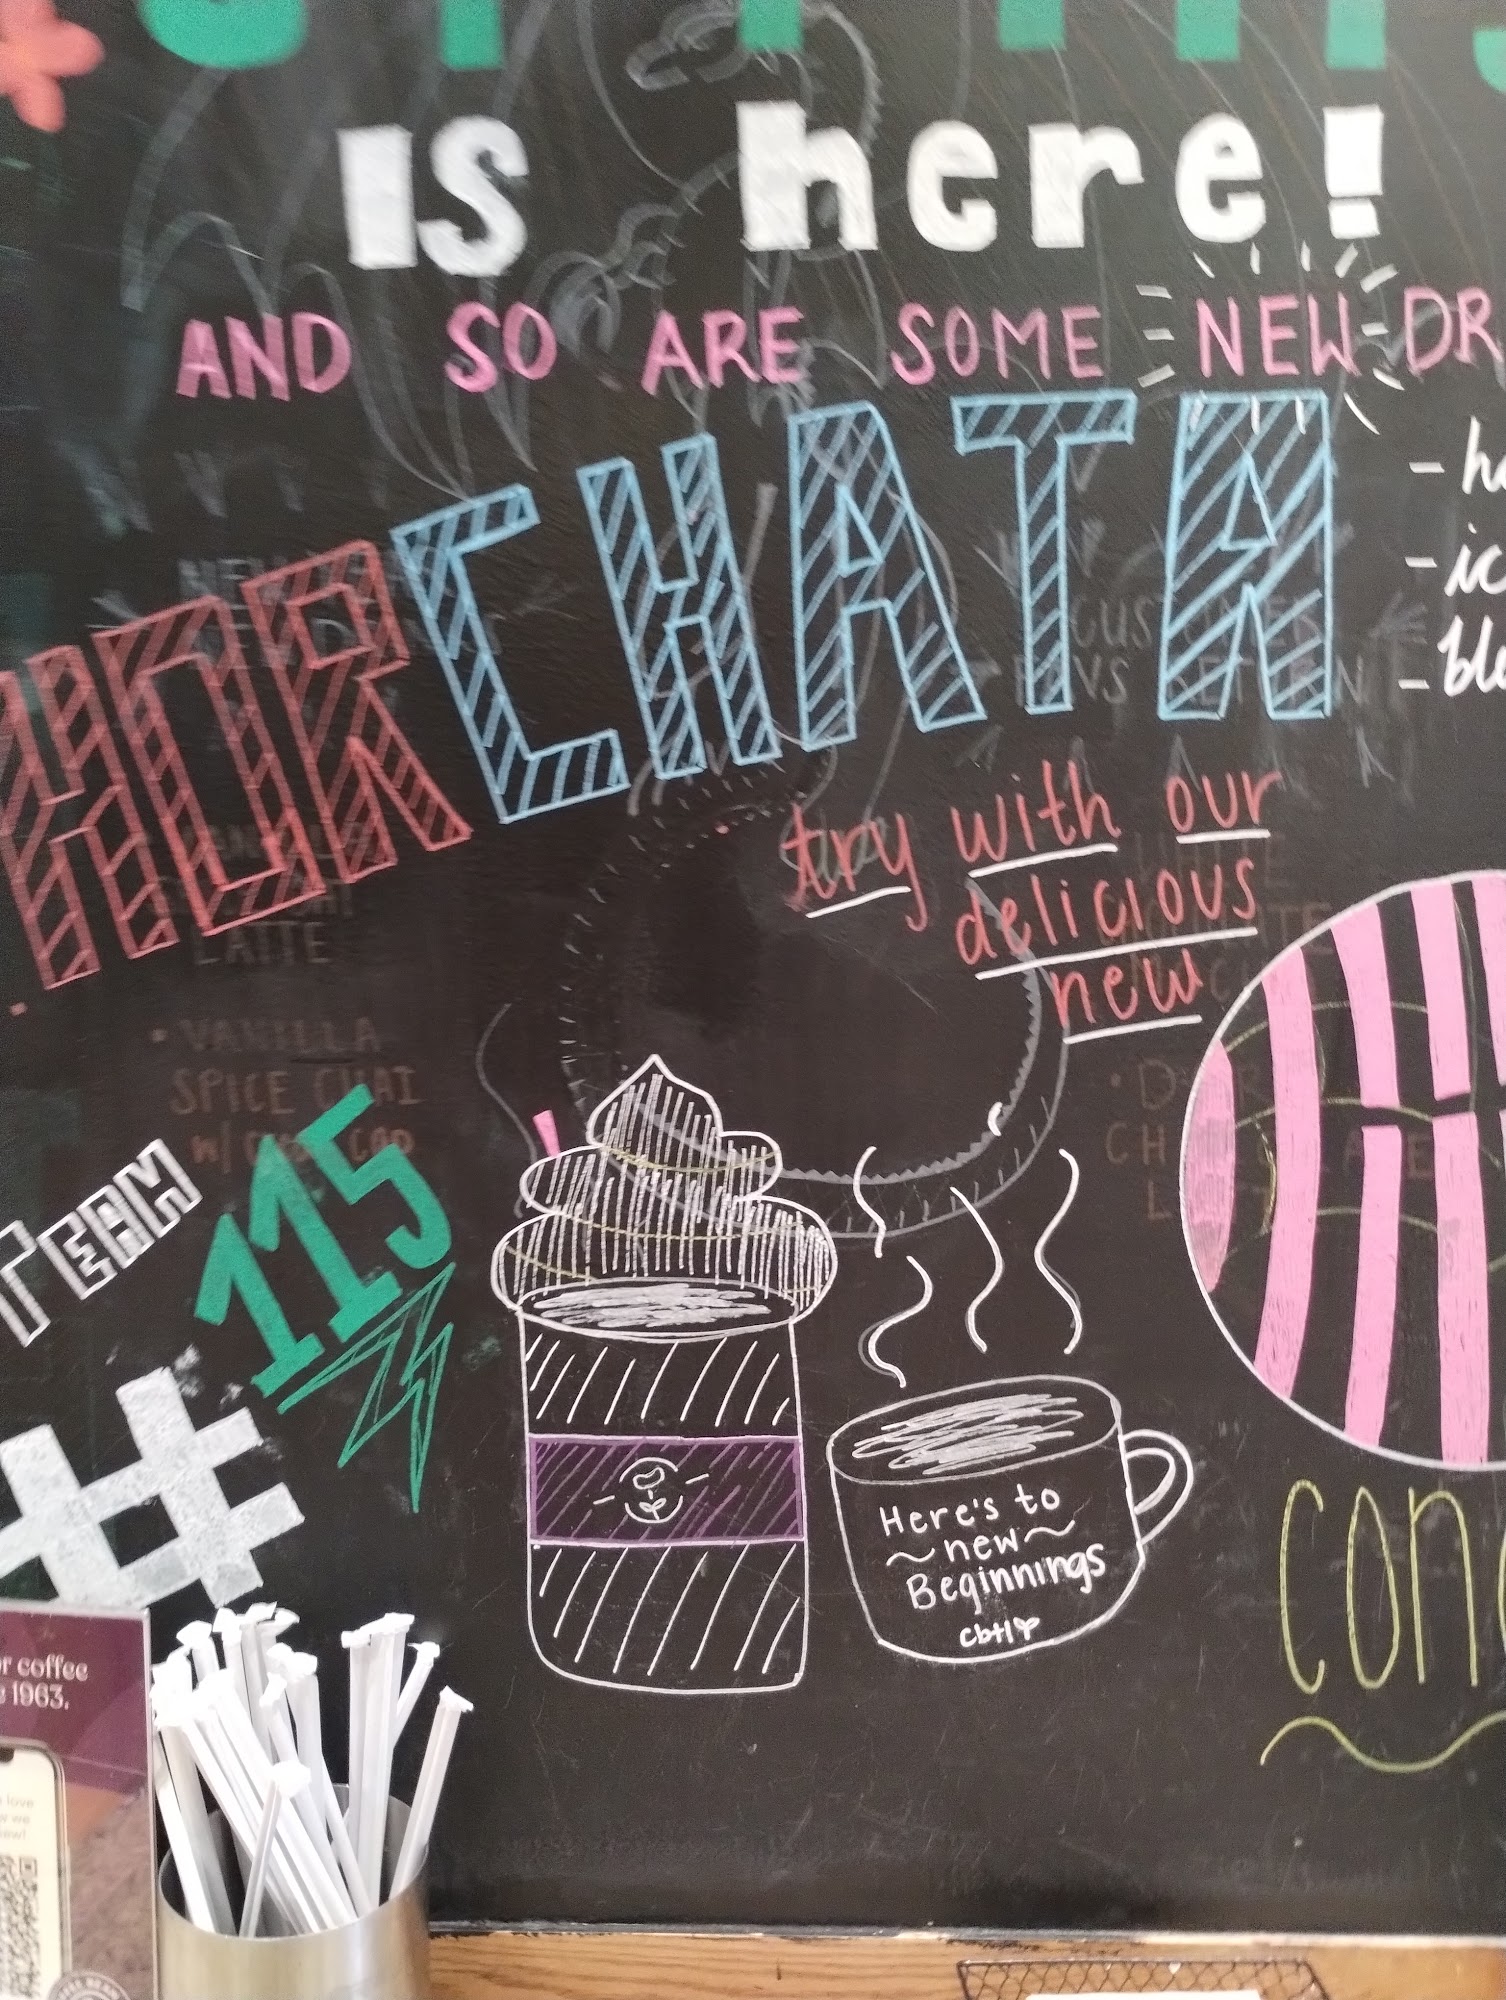 is here!
AND SO ARE SOME NEW DR
HORCHATA
- ho
- ic
- ble
try with our
delicious
new
LATTE
• VANILLA
SPICE CHAI
TEAM
115
#
Here's to
~new~
Beginnings
cbtl
con
r coffee
e 1963.
love
w we
new!